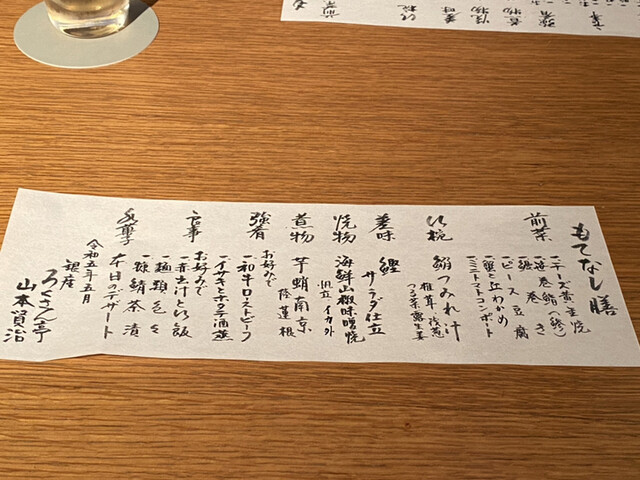 もてなし膳
前菜
一 チーズ黄金焼
一 笹巻鮨(鯵)
一 鰻巻き
一 ピース豆腐
一 蟹と立わかめ
一 ミニトマトコンポート
吸椀 鰯つみれ汁
椎茸 浅葱
つる菜 露生姜
差味 鰹 サラダ仕立
焼物 海鮮山椒味噌焼
帆立 イカ 外
煮物 芋蛸南京
蓮根
強肴 お好みで
一 和牛ローストビーフ
一 イサキとホタテ酒蒸
食事 お好みで
一 赤出汁と御飯
一 麺類色々
一 鯖茶漬
水菓子 本日のデザート
令和五年五月
銀座 ろくさん亭
山本賢治
前菜
差味
焼物
煮物
強肴